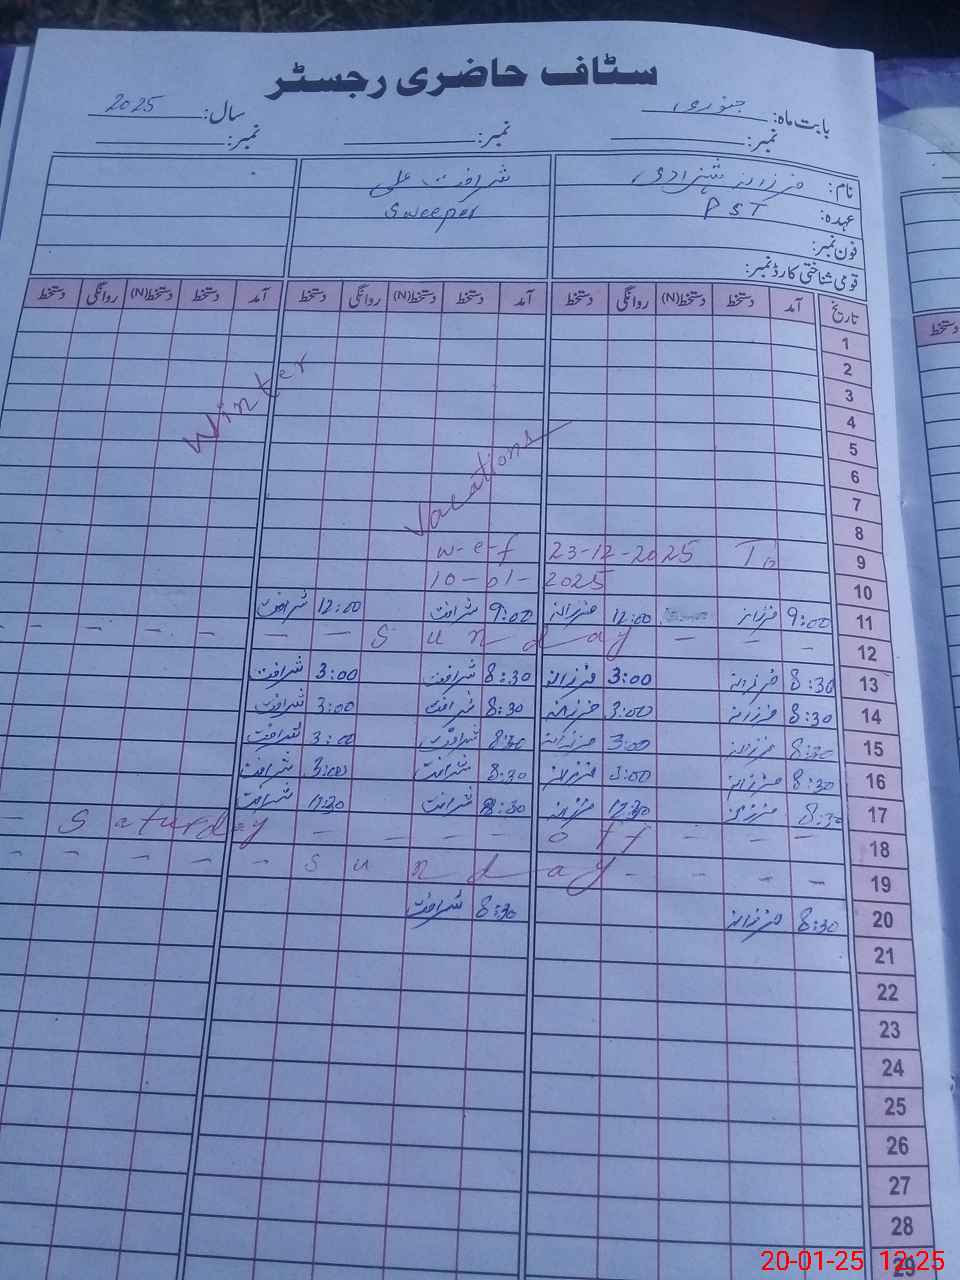 سٹاف حاضری رجسٹر
بابت ماہ: جنوری سال: 2025
نمبر: نمبر: نمبر:
نام: فرزانہ شہزادی شرافت علی
عہدہ: PST Sweeper
فون نمبر:
قومی شناختی کارڈ نمبر:
تاریخ آمد دستخط دستخط(N) روانگی دستخط آمد دستخط دستخط(N) روانگی دستخط آمد دستخط دستخط(N) روانگی دستخط
1
2
3
4
5
6
7
Winter Vacations
8
w-e-f 23-12-2025 To
9
10-01-2025
10
11 9:00 فرزانہ 12:00 فرزانہ 9:00 شرافت 12:00 شرافت
12 Sunday
13 8:30 فرزانہ 3:00 فرزانہ 8:30 شرافت 3:00 شرافت
14 8:30 فرزانہ 3:00 فرزانہ 8:30 شرافت 3:00 شرافت
15 8:30 فرزانہ 3:00 فرزانہ 8:30 شرافت 3:00 شرافت
16 8:30 فرزانہ 3:00 فرزانہ 8:30 شرافت 3:00 شرافت
17 8:30 فرزانہ 12:30 فرزانہ 8:30 شرافت 12:30 شرافت
18 Saturday off
19 Sunday
20 8:30 فرزانہ 8:30 شرافت
21
22
23
24
25
26
27
28
29
20-01-25 12:25